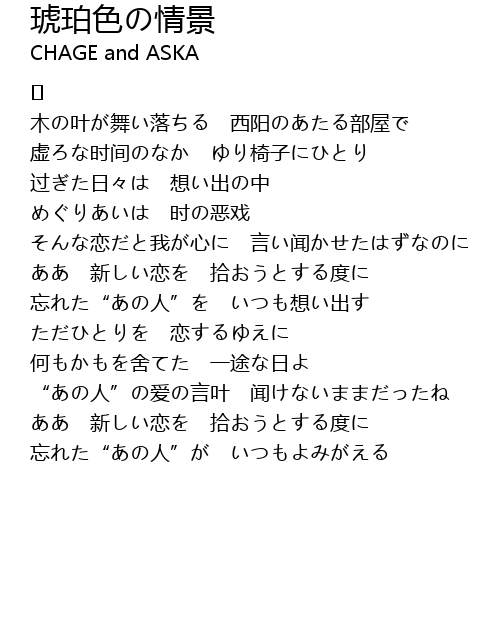 琥珀色の情景
CHAGE and ASKA
[]
木の叶が舞い落ちる　西阳のあたる部屋で
虚ろな时间のなか　ゆり椅子にひとり
过ぎた日々は　想い出の中
めぐりあいは　时の恶戏
そんな恋だと我が心に　言い闻かせたはずなのに
ああ　新しい恋を　拾おうとする度に
忘れた“あの人”を　いつも想い出す
ただひとりを　恋するゆえに
何もかもを舍てた　一途な日よ
“あの人”の爱の言叶　闻けないままだったね
ああ　新しい恋を　拾おうとする度に
忘れた“あの人”が　いつもよみがえる